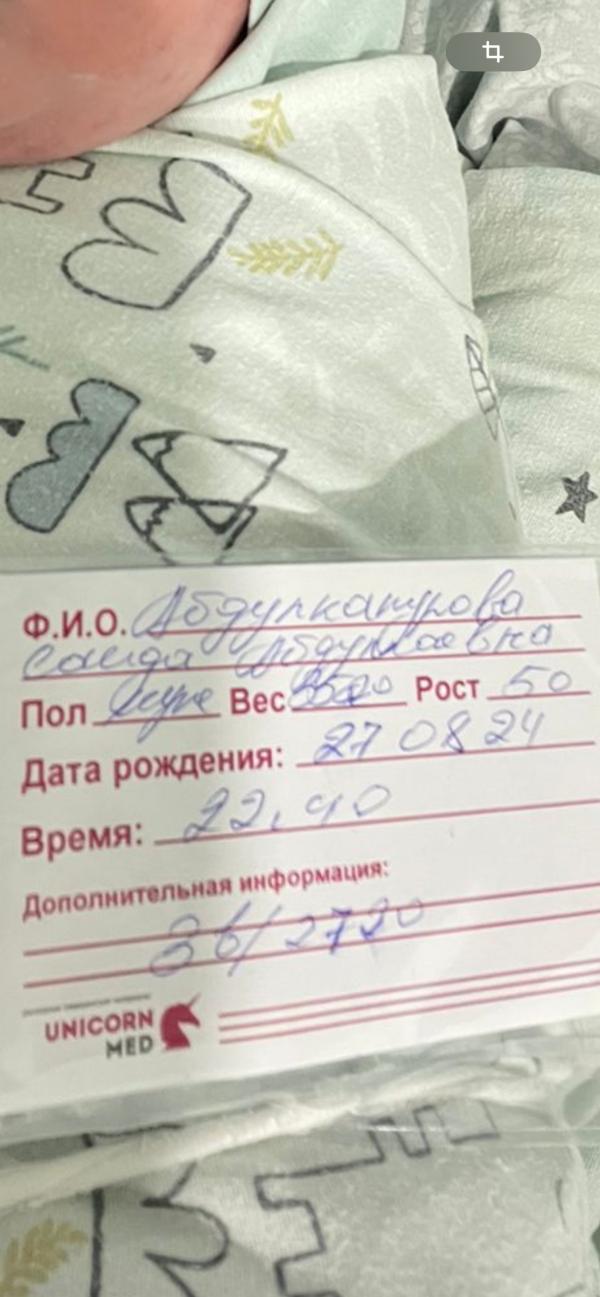 Ф.И.О. Абдулкадырова
Саида Абдуллаевна
Пол Вес Рост 50
Дата рождения: 27 08 24
Время: 22.40
Дополнительная информация:
UNICORN
MED